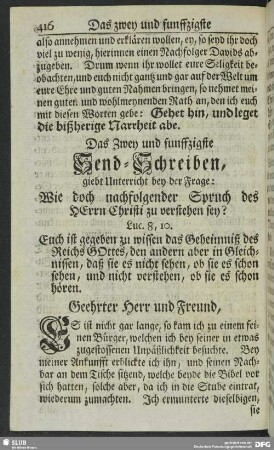 416 Das zwey und funffzigste
also annehmen und erklären wollen, ey, so seyd ihr doch
viel zu wenig, hierinnen einen Nachfolger Davids ab-
zugeben. Drum wenn ihr wollet eure Seligkeit be-
obachten, und euch nicht gantz und gar auf der Welt um
eure Ehre und guten Nahmen bringen, so nehmet mei-
nen guten und wohlmeynenden Rath an, den ich euch
mit diesen Worten gebe: Gehet hin, und leget
die bißherige Narrheit abe.
Das Zwey und funffzigste
Send-Schreiben,
giebt Unterricht bey der Frage:
Wie doch nachfolgender Spruch des
HErrn Christi zu verstehen sey?
Luc. 8, 10.
Euch ist gegeben zu wissen das Geheimniß des
Reichs GOttes, den andern aber in Gleich-
nissen, daß sie es nicht sehen, ob sie es schon
sehen, und nicht verstehen, ob sie es schon
hören.
Geehrter Herr und Freund,
ES ist nicht gar lange, so kam ich zu einem fei-
nen Bürger, welchen ich bey seiner in etwas
zugestossenen Unpäßlichkeit besuchte. Bey
meiner Ankunfft erblickte ich ihn, und seinen Nach-
bar an dem Tische sitzend, welche beyde die Bibel vor
sich hatten, solche aber, da ich in die Stube eintrat,
wiederum zumachten. Ich ermunterte dieselbigen,
sie
SLUB
DFG